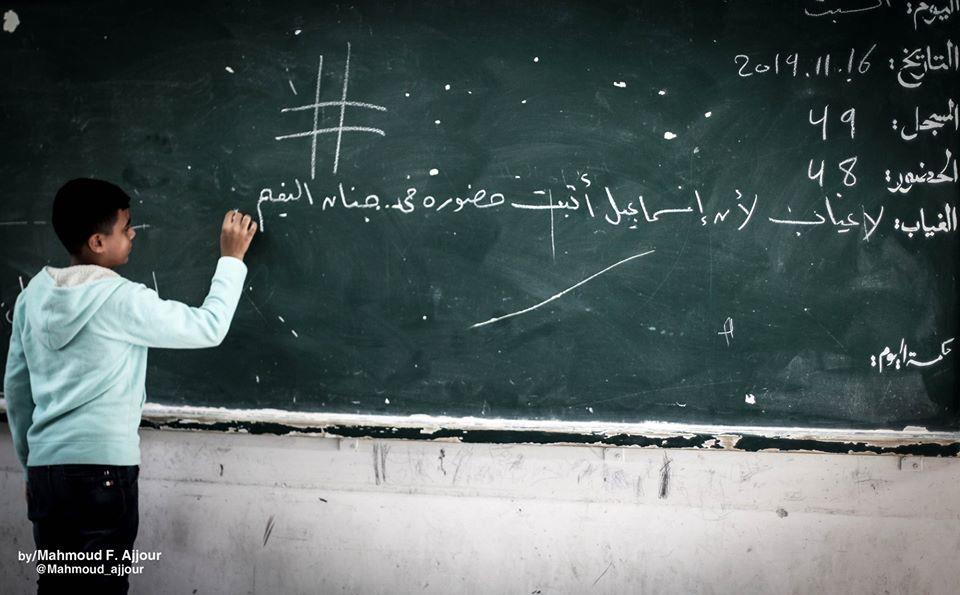 اليوم: السبت
التاريخ: 2019.11.16
المسجل: 49
الحضور: 48
الغياب: لا غياب لأن إسماعيل أثبت حضوره في جنان النعيم
حكمة اليوم:
by/Mahmoud F. Ajjour
@Mahmoud_ajjour